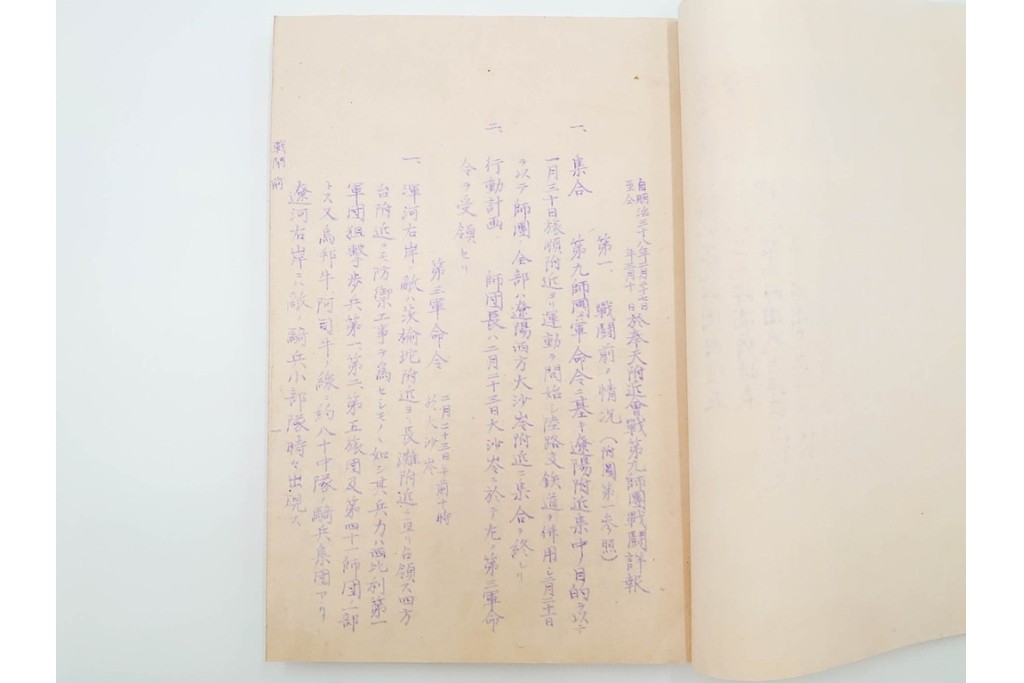 自明治三十八年二月二十七日
至仝 年三月十 日 於奉天附近會戰第九師團戰闘詳報
第一、戰闘前ノ情況（附圖第一参照）
一、集合 第九師團ハ軍命令ニ基キ遼陽附近集中ノ目的ヲ以テ
一月三十日旅順附近ヨリ運動ヲ開始シ陸路及鉄道ヲ併用シ二月二十日
ヲ以テ師團ノ全部ハ遼陽西方大沙岺附近ニ集合ヲ終レリ
二、行動計画 師団長ハ二月二十三日大沙岺ニ於テ左ノ第三軍命
令ヲ受領セリ
第三軍命令 二月二十三日午前十時
於大沙岺
一、渾河右岸ノ敵ハ 榆坨附近ヨリ長灘附近ニ亘リ占領ス四方
台附近ニモ防禦工事ヲ為セシモノヽ如シ其兵力ハ西比利第一
軍団狙撃歩兵第一、第二、第五旅団及第四十一師団ノ一部
トス又烏邦牛、阿司牛ノ線ニ約八十中隊ノ騎兵集団アリ
遼河右岸ニハ敵ノ騎兵小部隊時々出現ス
戰闘前